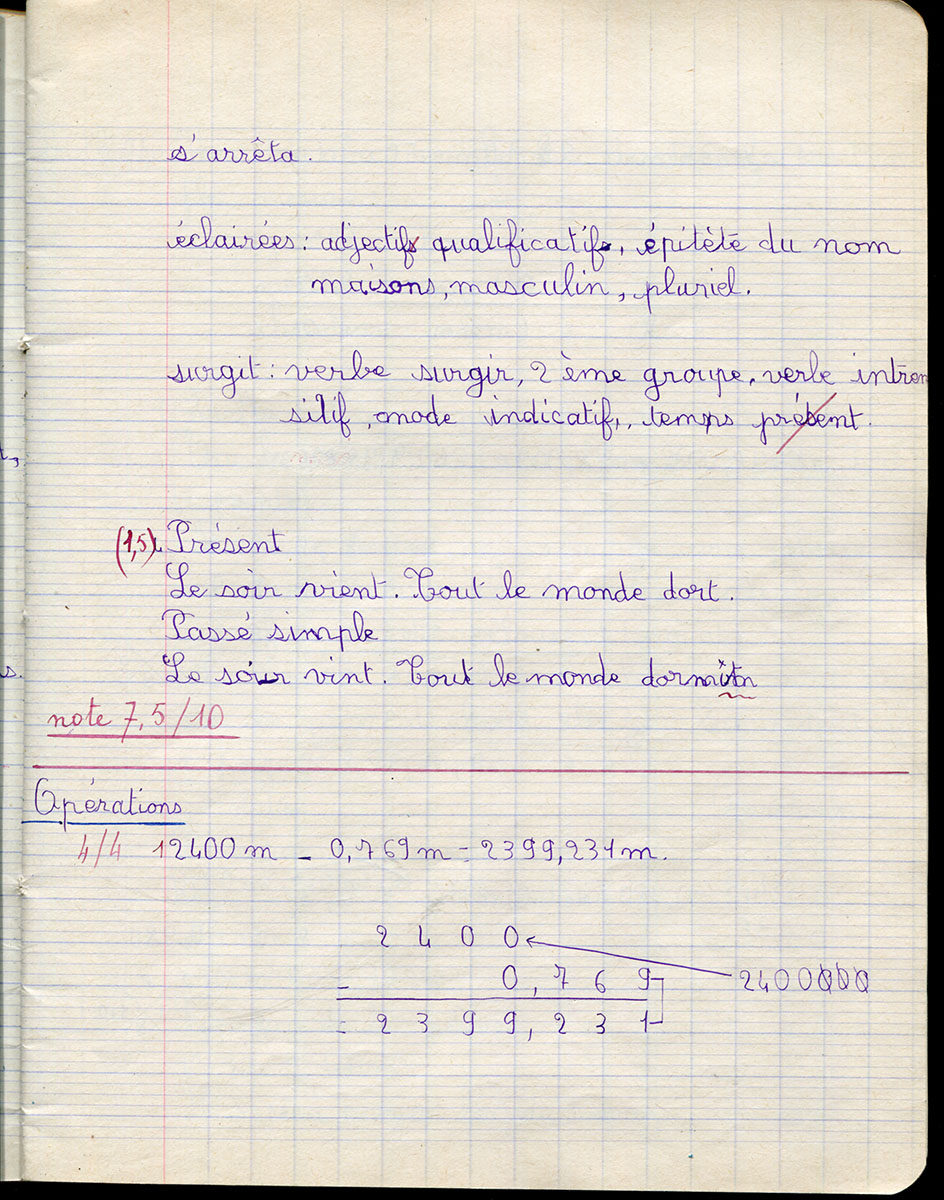 s'arrêta.
éclairées : adjectif qualificatif, épitèté du nom
maisons, masculin, pluriel.
surgit : verbe surgir, 2ème groupe, verbe intran
sitif, mode indicatif, temps présent.
(1,5) Présent
Le soir vient. Tout le monde dort.
Passé simple
Le soir vint. Tout le monde dormitn
note 7,5/10
Opérations
4/4 12400 m - 0,769 m = 2399,231 m.
2 4 0 0
- 0,7 6 9 2400000
= 2 3 9 9,2 3 1